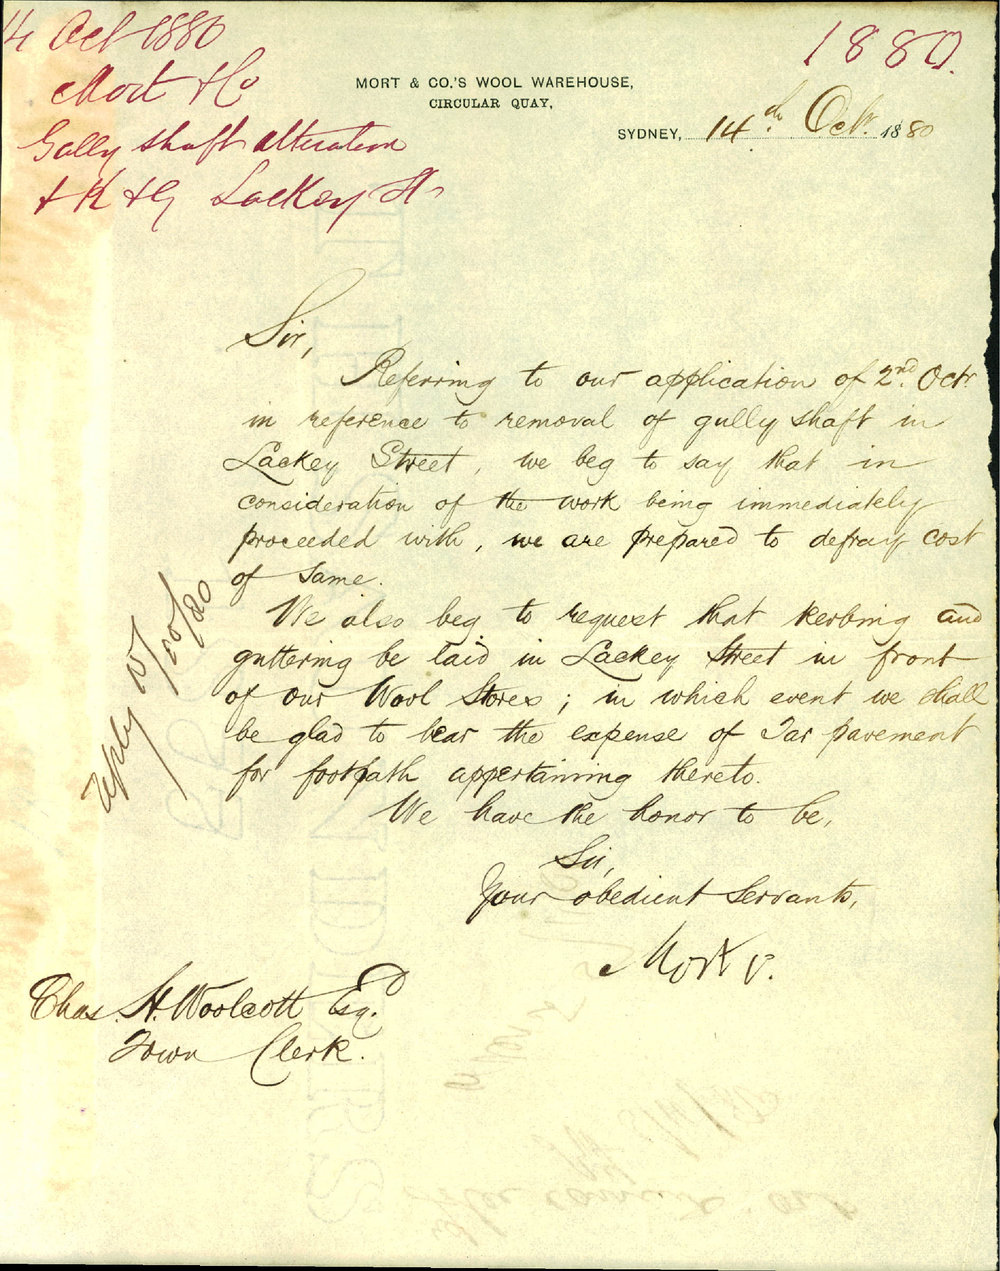 14 Oct 1880
Mort & Co
Gully shaft alteration
& K & G Lackey St
1880.
MORT & CO.'S WOOL WAREHOUSE,
CIRCULAR QUAY,
SYDNEY, 14th Octr. 1880
Sir,
Referring to our application of 2nd. Octr.
in reference to removal of gully shaft in
Lackey Street, we beg to say that in
consideration of the work being immediately
proceeded with, we are prepared to defray cost
of same.
We also beg to request that kerbing and
guttering be laid in Lackey Street in front
of our Wool Stores; in which event we shall
be glad to bear the expense of Tar pavement
for footpath appertaining thereto.
We have the honor to be,
Sir,
Your obedient Servants,
Mort & Co.
Chas. H. Woolcott Esqd.
Town Clerk.